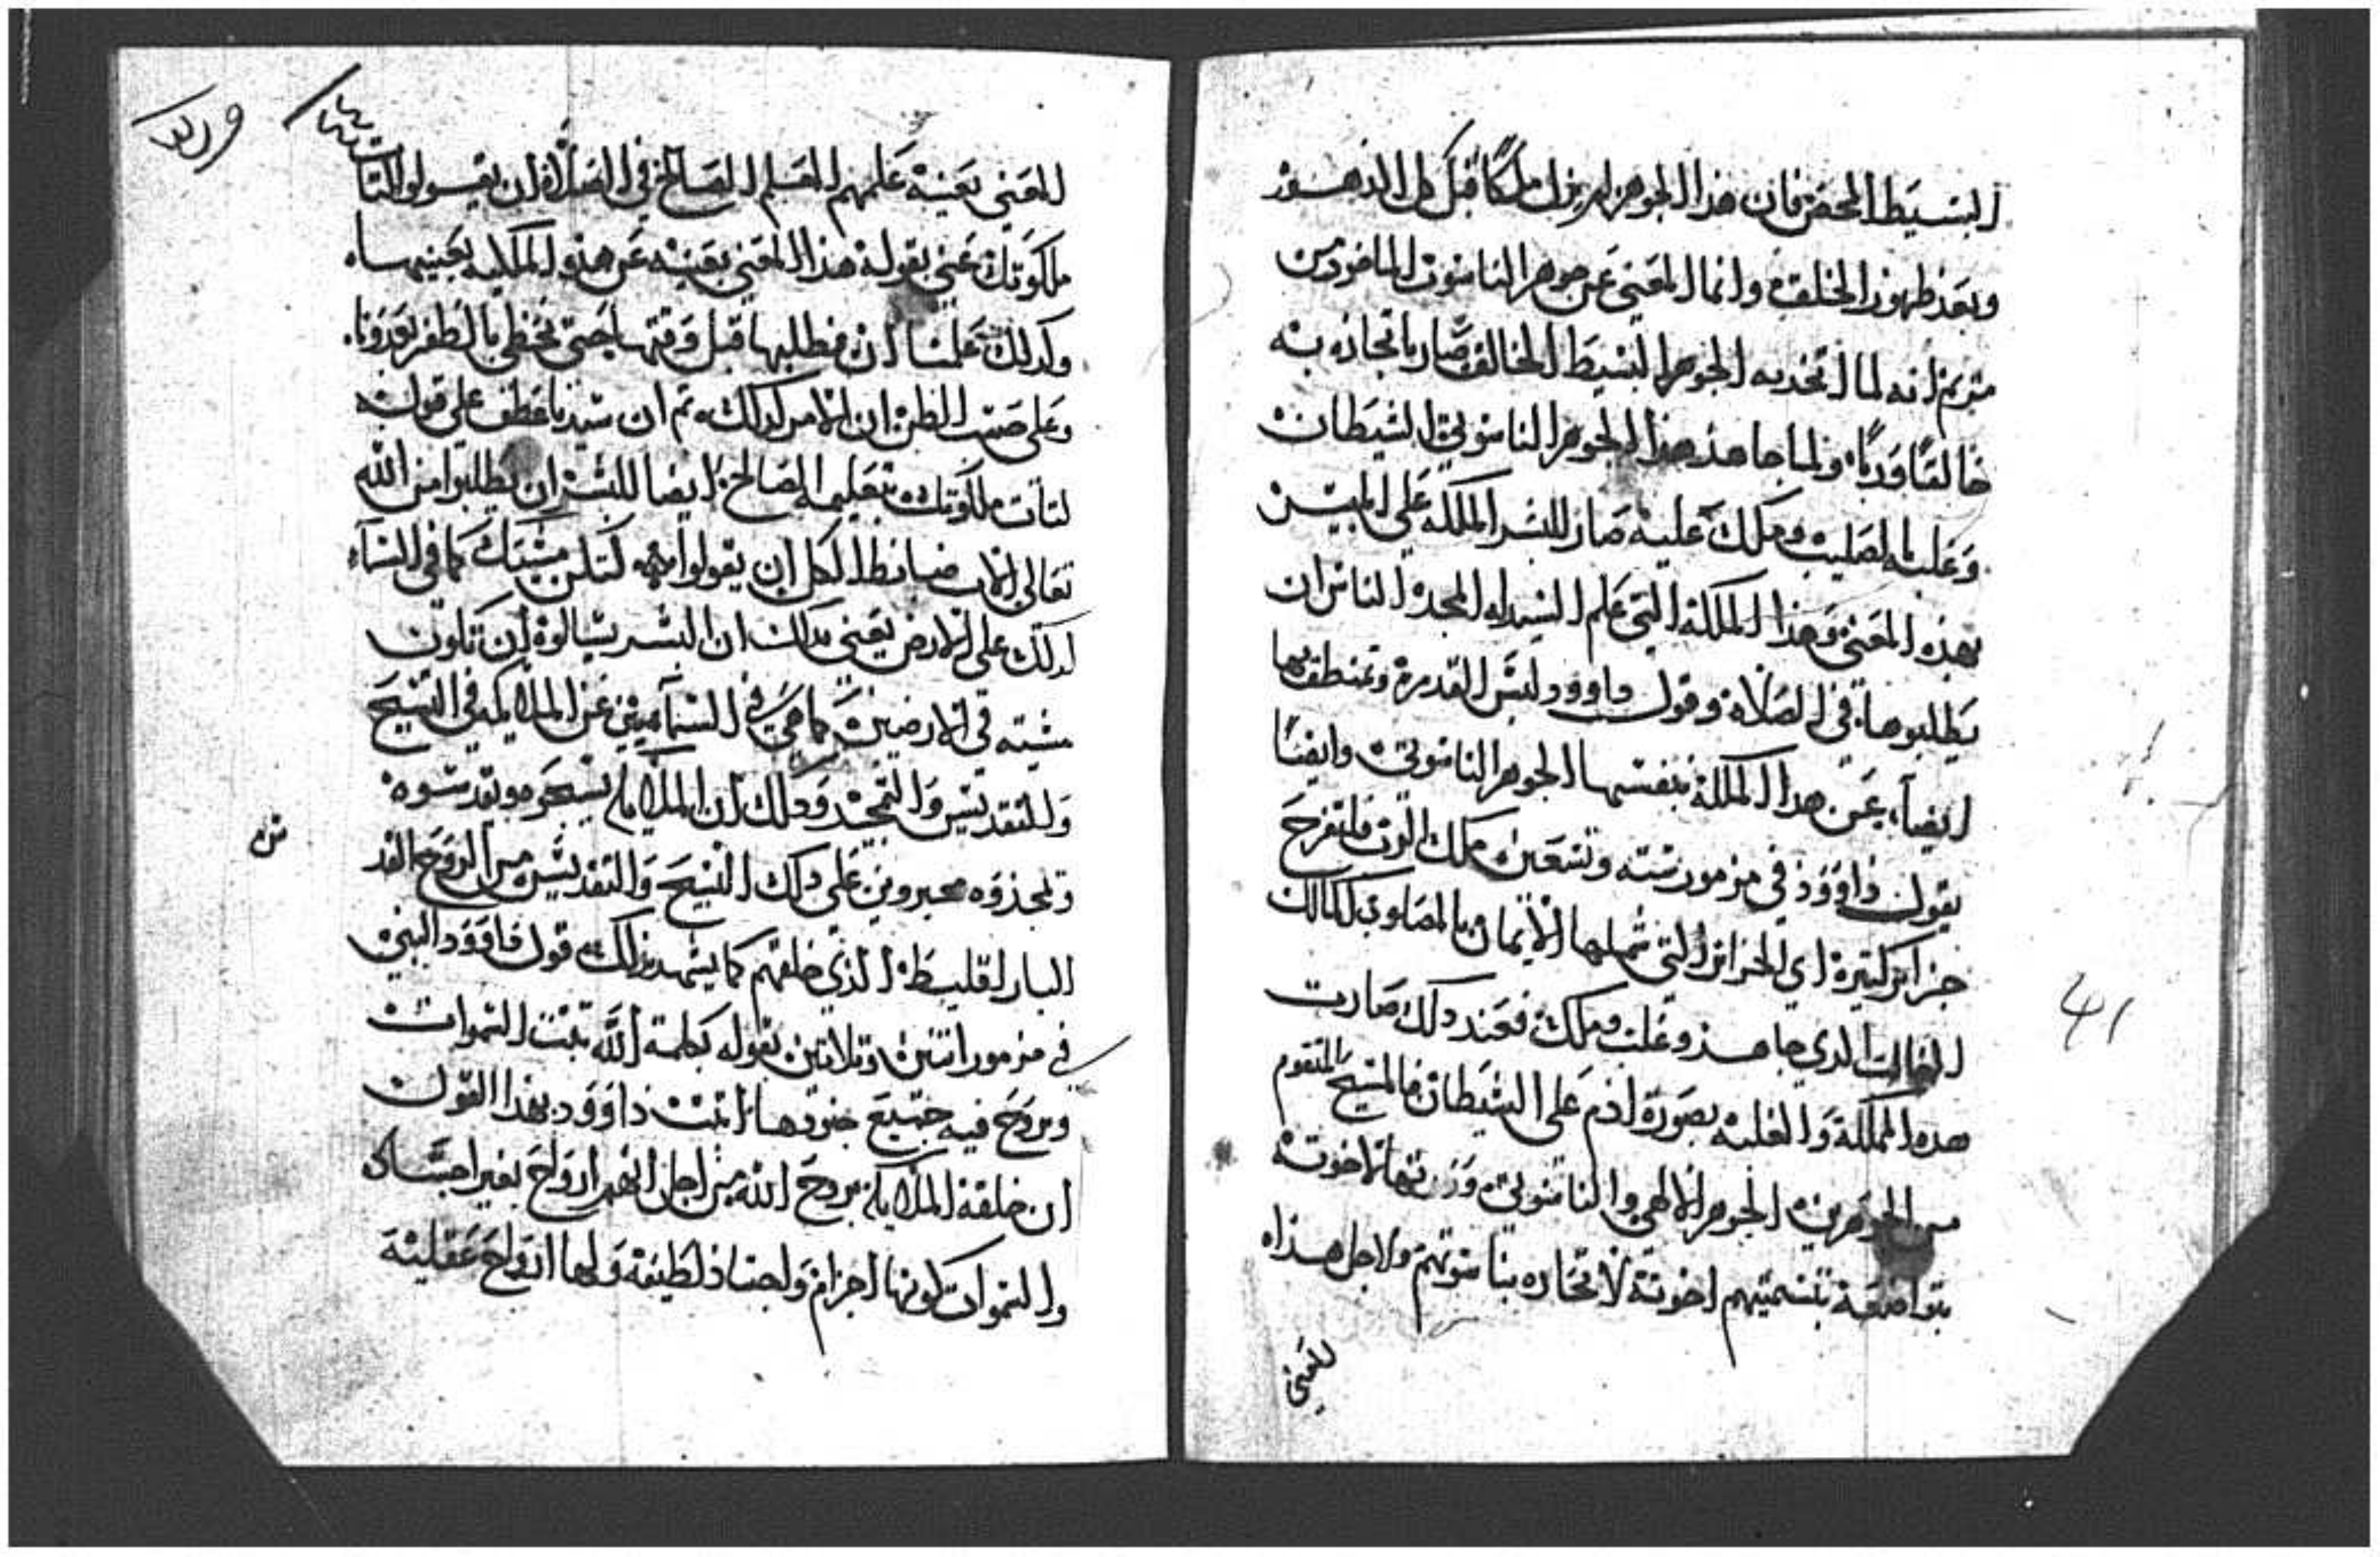 البسيط المحض فان هذا الجوهر لم يزل ملكًا قبل كل الدهور
وبعد ظهور الخلقه وانما المعني عن جوهر الناسوت الماخود من
مريم انه لما اتحد به الجوهر البسيط الخالق صار باتحاده به
خالقًا وربًا، ولما جاهد هذا الجوهر الناسوتي الشيطان
وغلبه بالصليب وملك عليه صار للبشر المملكه علي ابليس
بهذه المعني وهذا المملكة التي علم السيد له المجد الناس ان
يطلبوها في الصلاة وقول داوود لبس القدرة وتمنطق بها
ايضاً، عن هدا المملكة بنفسها الجوهر الناسوتي وايضًا
يقول داوود في مزمور سته وتسعين ملك الرب فلتفرح
جزاير كتيرة اي الجزاير التي شملها الايمان بالمصلوب المالك
الغالب الدي جاهد وغلب وملك فعند دلك صارت
هده المملكة والغلبه بصورة ادم علي الشيطان فالمسيح المتقوم
من الجوهرين الجوهر الالهي والناسوتي ورنتها لاخوته
بتواضعه بتسميتهم اخوته لاتحاده بناسوتهم ولاجل هذاه
المعني
المعني بعينه علمهم المعلم الصالح في الصلاة ان يقولوا لتات
ملكوتك عني بقوله هذا المعني بعينه عن هذه المملكه بعينهاه
وكدلك علمنا ان نطلبها قبل وقتها حتي نحظي بالظفر بعدونا.
وعلي حسب الظن ان الامر كدلك، تم ان سيدنا عطف علي قوله
لتات ملكوتك بتعليمه الصالح ايضا للبشر ان يطلبوا من الله
تعالي الاب ضابط الكل ان يقولوا لتكن مشيتك كما في السماء
كدلك علي الارض يعني بدلك ان البشر يسالوه ان تكون
مشيته في الارضيين كما هي في السمآيين عن الملايكه في التسبيح
والتقديس والتمجيد ودلك ان الملايكه يسبحوه ويقدسوه
ويمجدوه مجبرون علي دلك التسبيح والتقديس من الروح القد
س
البارقليط الذي خلقهم كما يشهد بدلك قول داوود النبي
في مزمور اتنين وتلاتين بقوله بكلمة الله تبتت السموات
وبروح فيه جميع جنودها اتبت داوود بهذا القول
ان خلقة الملايكه بروح الله من اجل انهم ارواح بغير اجساد
والسموات كونها اجرام واجساد لطيفة ولها ارواح عقلية